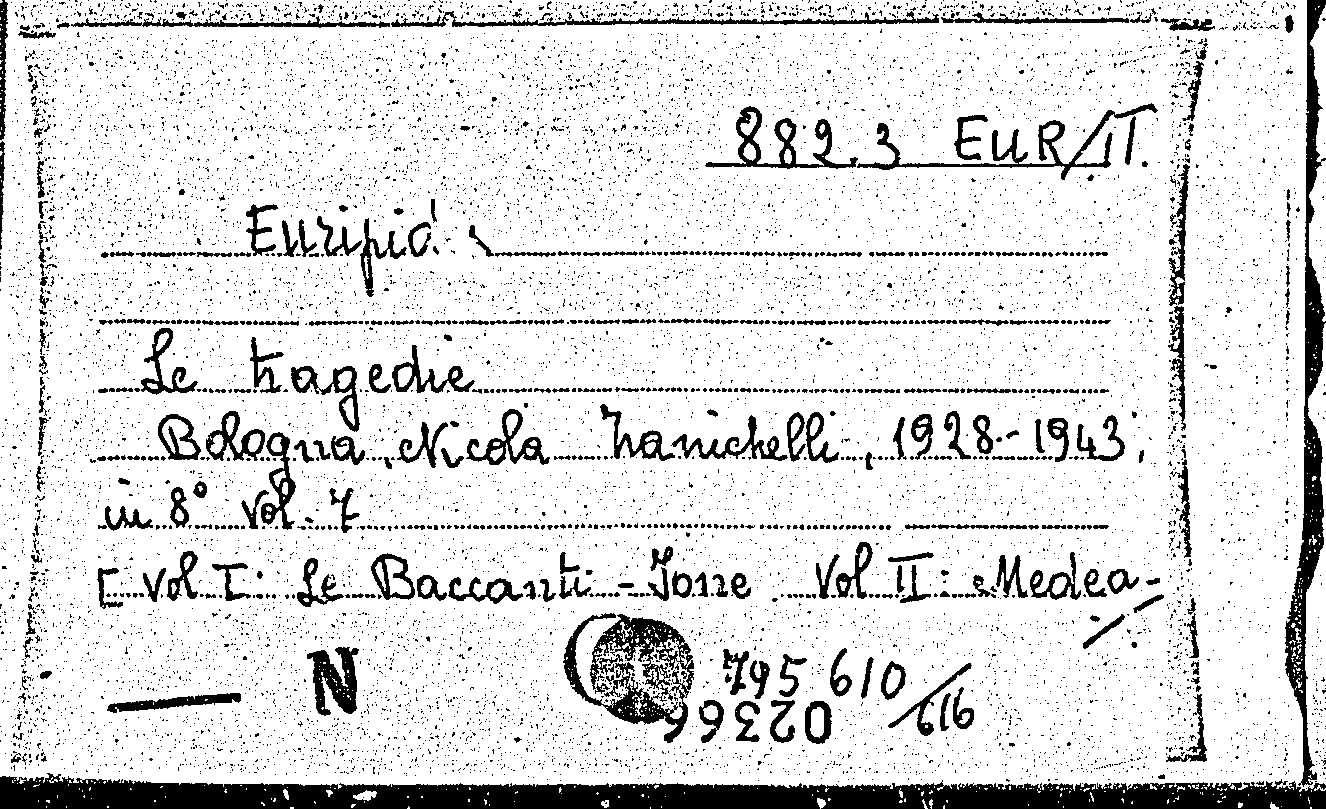 882.3 EUR/IT.
Euripid
Le tragedie
Bologna, Nicola Zanichelli, 1928-1943,
in 8° vol. 7
[ Vol I: Le Baccanti - Jone Vol II: Medea-
N 795 610/616
02366